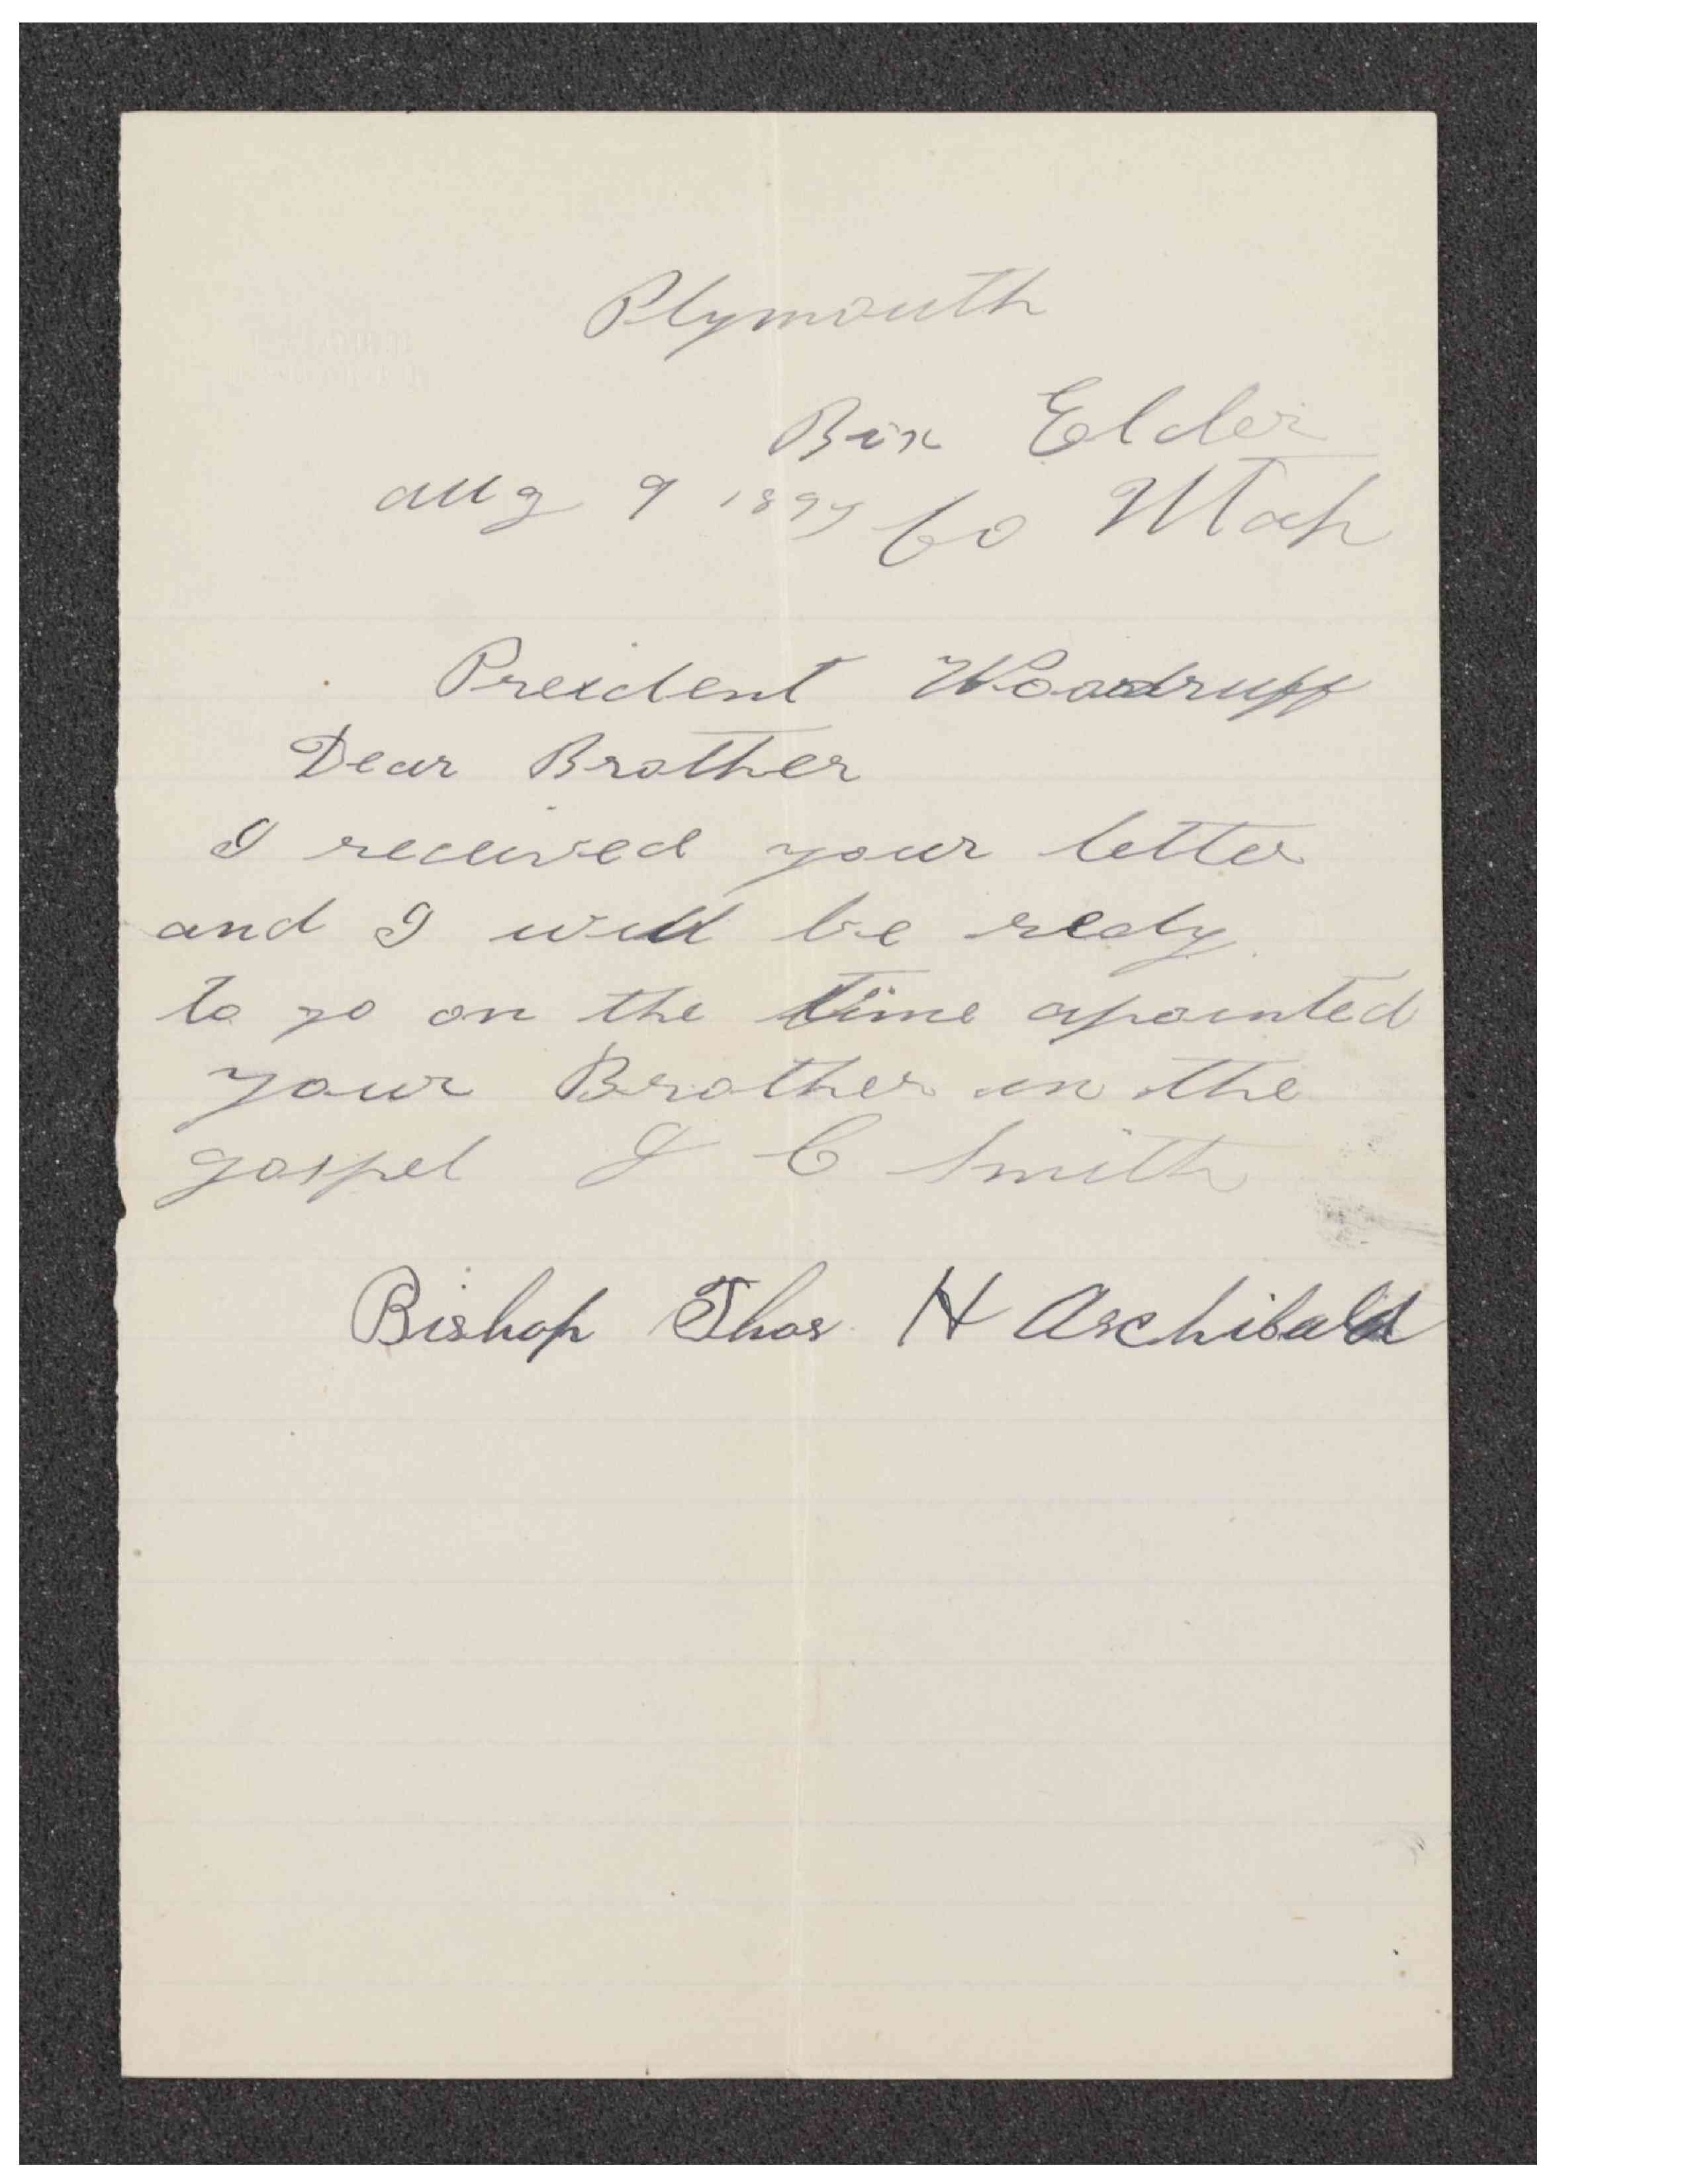 Plymouth
Box Elder
aug 9 1897 Co Utah
Preident Woodruff
Dear Brother
I received your letter
and I will be redy
to go on the time apointed
your Brother in the
gospel J C Smith
Bishop Thos H Archibald